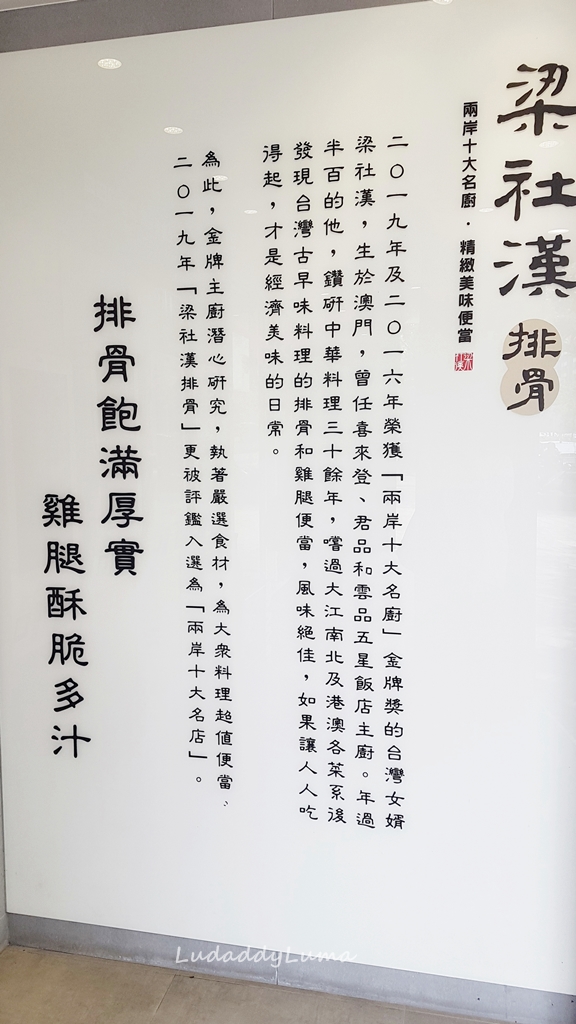 梁社漢
排骨
兩岸十大名廚．精緻美味便當
二〇一九年及二〇一六年榮獲「兩岸十大名廚」金牌獎的台灣女婿
梁社漢，生於澳門，曾任喜來登、君品和雲品五星飯店主廚。年過
半百的他，鑽研中華料理三十餘年，嚐過大江南北及港澳各菜系後
發現台灣古早味料理的排骨和雞腿便當，風味絕佳，如果讓人人吃
得起，才是經濟美味的日常。
為此，金牌主廚潛心研究，執著嚴選食材，為大眾料理超值便當、
二〇一九年「梁社漢排骨」更被評鑑入選為「兩岸十大名店」。
排骨飽滿厚實
雞腿酥脆多汁
LudaddyLuma